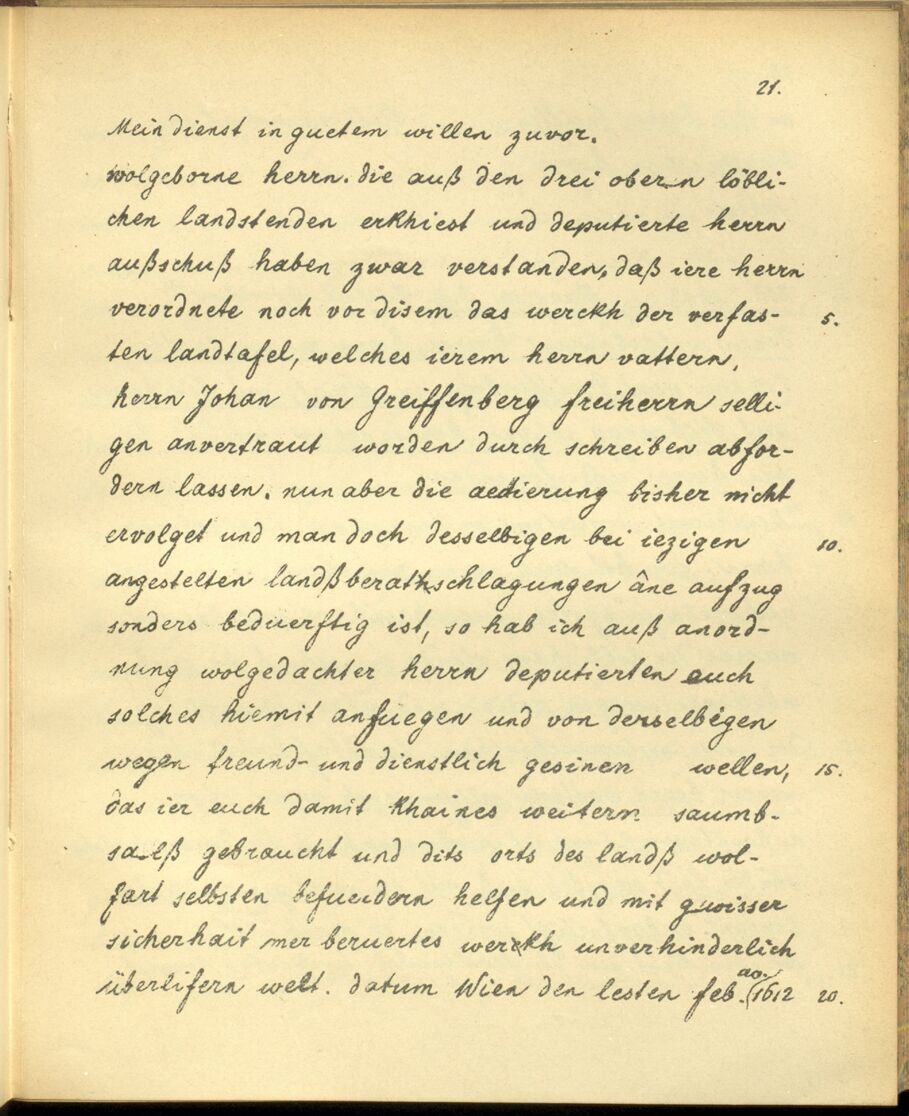 21.
Mein dienst in guetem willen zuvor.
wolgeborne herrn. die auß den drei obern löbli-
chen landstenden erkhiest und deputierte herrn
außschuß haben zwar verstanden, daß iere herrn
verordnete noch vor disem das werckh der verfas- 5.
ten landtafel, welches ierem herrn vattern,
herrn Johan von Greiffenberg freiherrn selli-
gen anvertraut worden durch schreiben abfor-
dern lassen. nun aber die aedierung bisher nicht
ervolget und man doch desselbigen bei iezigen 10.
angestelten landßberathschlagungen âne aufzug
sonders beduerftig ist, so hab ich auß anord-
nung wolgedachter herrn deputierten euch
solches hiemit anfuegen und von derselbigen
wegen freund- und dienstlich gesinen wellen, 15.
das ier euch damit khaines weitern saumb-
salß gebraucht und dits orts des landß wol-
fart selbsten befuerdern helfen und mit gwisser
sicherhait mer beruertes werckh unverhinderlich
überlifern welt. datum Wien den lesten feb. ao. 1612 20.